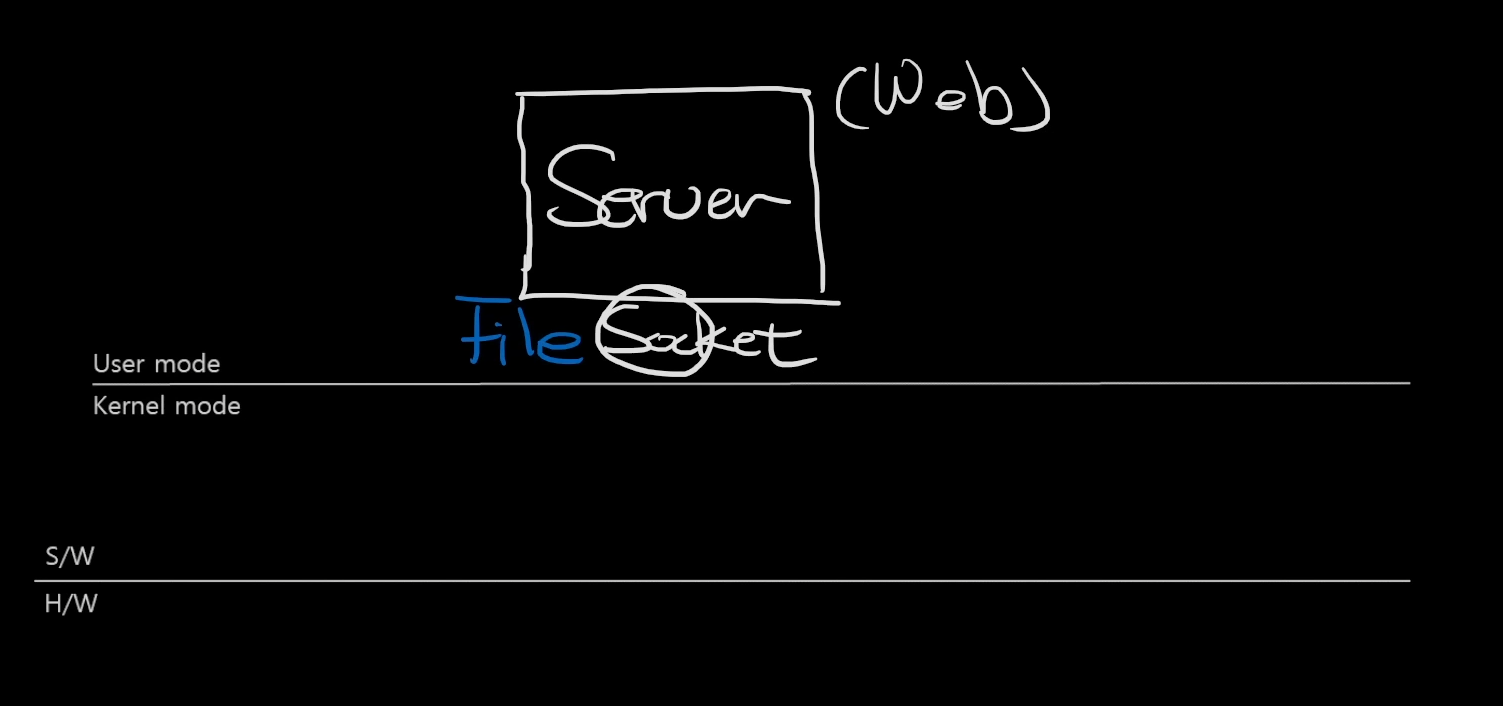 (Web)
Server
File Socket
User mode
Kernel mode
S/W
H/W